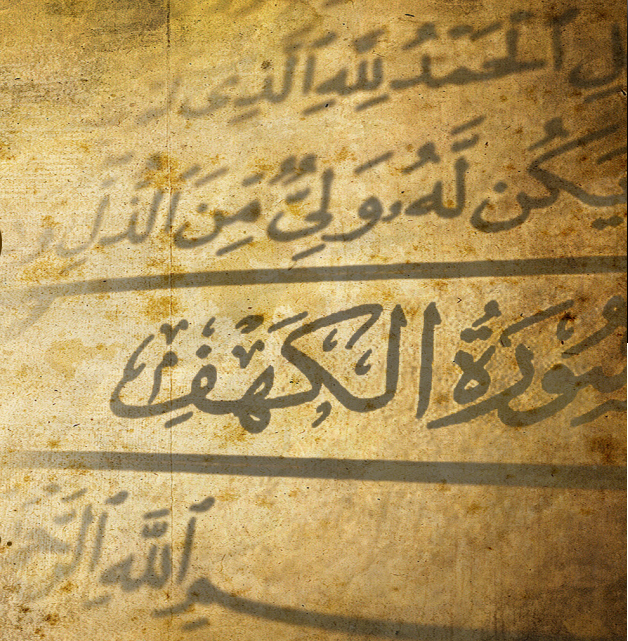 ٱلْحَمْدُ لِلَّهِ ٱلَّذِى
يَكُن لَّهُۥ وَلِىٌّ مِّنَ ٱلذُّلِّ
سُورَةُ الْكَهْفِ
ٱللَّهِ